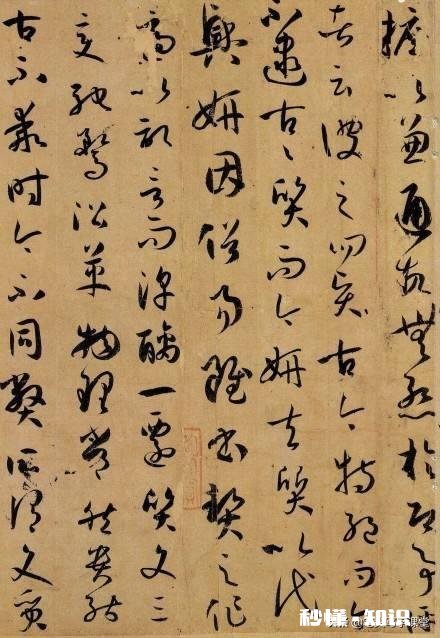 摭以兼通故無慙於即事評
者云彼之四賢古今特絕而今
不逮古〻質而今妍夫質以代
興妍因俗易雖書契之作
適以記言而淳醨一遷質文三
變馳騖沿革物理常然貴能
古不乖時今不同弊所謂文質
秒懂·知识
课堂